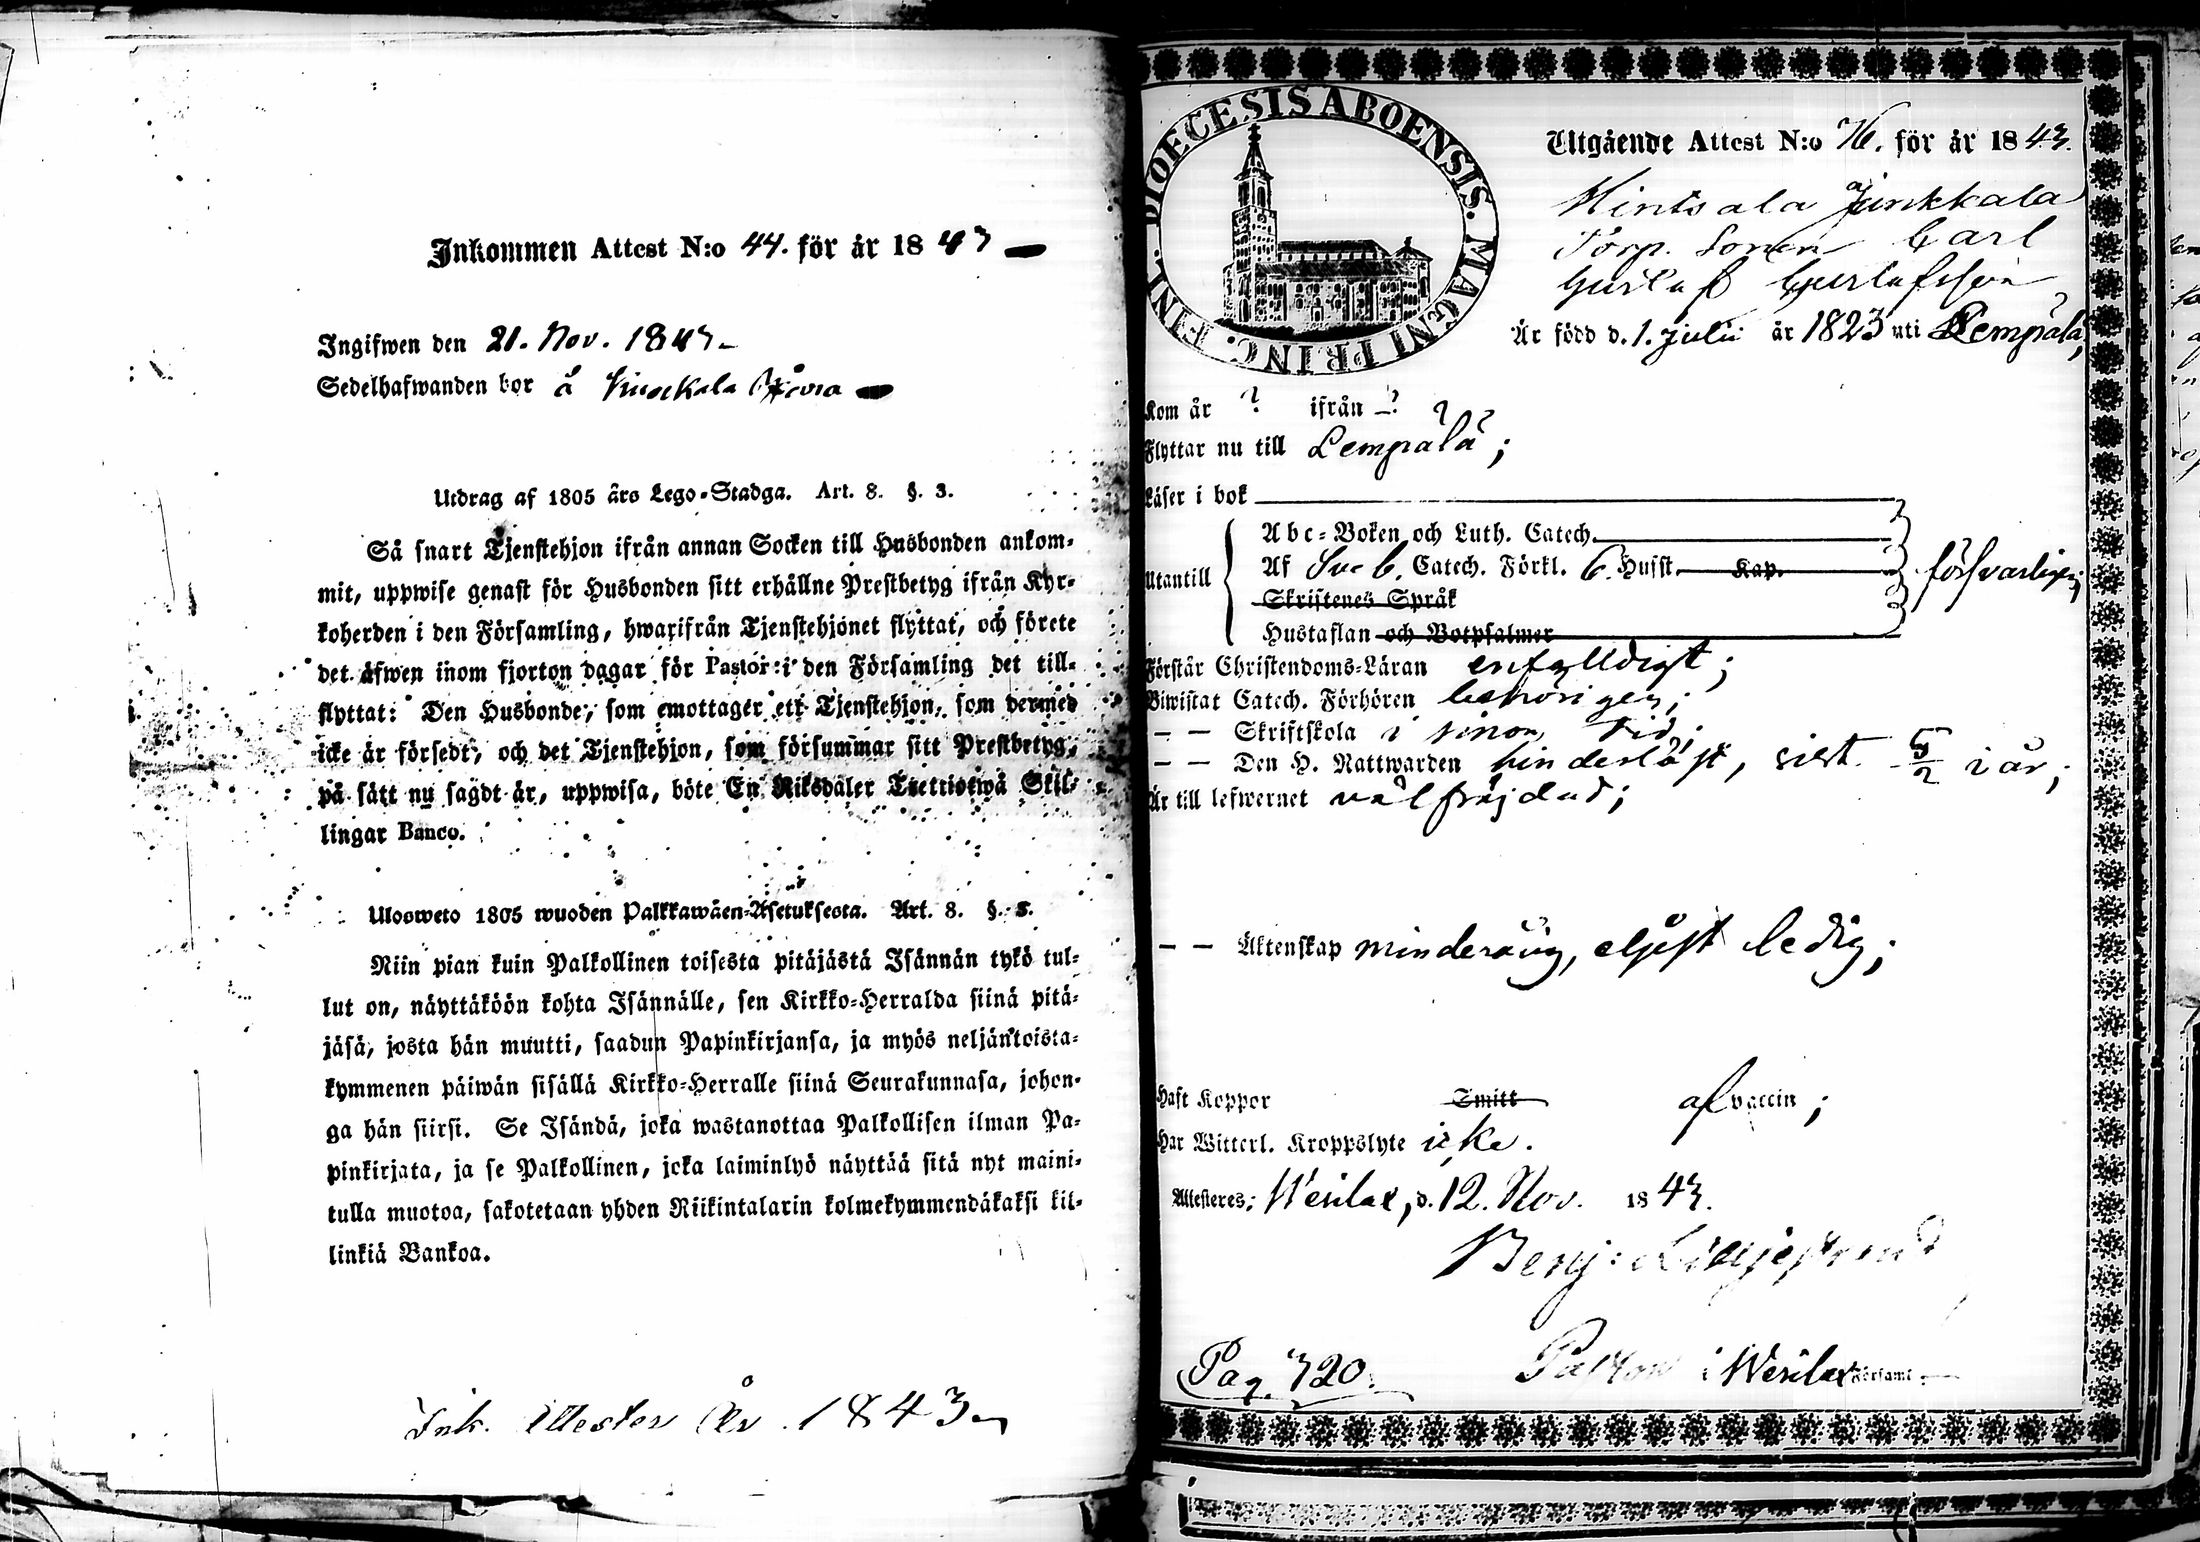 Inkommen Attest N:o 44. för år 1843
Ingifwen den 21. Nov. 1843
Sedelhafwanden bor å
Utdrag af 1805 års Lego-Stadga. Art. 8. §. 3.
Så snart Tjenstehjon ifrån annan Socken till Husbonden ankom-
mit, uppwise genast för Husbonden sitt erhållne Prestbetyg ifrån Kyr-
koherden i den Församling, hwarifrån Tjenstehjonet flyttat, och förete
det äfwen inom fjorton dagar för Pastor i den Församling det till-
flyttat: Den Husbonde, som emottager ett Tjenstehjon, som dermed
icke är försedt, och det Tjenstehjon, som försummar sitt Prestbetyg,
på sätt nu sagdt är, uppwisa, böte En Riksdaler Trettiotwå Skil-
lingar Banco.
Ulosweto 1805 wuoden Palkkawäen-Asetuksesta. Art. 8. §. 3.
Niin pian kuin Palkollinen toisesta pitäjästä Isännän tykö tul-
lut on, näyttäköön kohta Isännälle, sen Kirkko-Herralda siinä pitä-
jäsä, josta hän muutti, saadun Papinkirjansa, ja myös neljäntoista-
kymmenen päiwän sisällä Kirkko-Herralle siinä Seurakunnasa, johon-
ga hän siirsi. Se Isändä, joka wastanottaa Palkollisen ilman Pa-
pinkirjata, ja se Palkollinen, joka laiminlyö näyttää sitä nyt maini-
tulla muotoa, sakotetaan yhden Riikintalarin kolmekymmendäkaksi kil-
linkiä Bankoa.
Ink. Attester År 1843
DIOECESIS ABOENSIS. MAGNI PRINC. FINL.
Utgående Attest N:o 76. för år 1843.
Hintsala Junkkala
Torp. Sonen Carl
Gustaf Gustafsson
Är född d. 1. Julii år 1823 uti Lempälä,
Kom år ? ifrån ?
Flyttar nu till Lempälä;
Läser i bok
Utantill
Abc-Boken och Luth. Catech.
Af Sve b. Catech. Förkl. 6. Husst. Kap.
Skriftenes Språk
Hustaflan och Botpsalmer
försvarligen;
Förstår Christendoms-Läran enfalldigt;
Biwistat Catech. Förhören behörigen;
— — Skriftskola i sinom tid;
— — Den H. Nattwarden hinderlöst, sist 5/2 i år;
Är till lefwernet välfräjdad;
— — Äktenskap minderårig, eljest ledig;
Haft Koppor Smitt af vaccin;
Har Witterl. Kroppslyte icke.
Attesteres; Wesilax, d. 12. Nov. 1843.
Benj: Lilljestrand
Pag. 320. Pastor i Wesilax Församl.